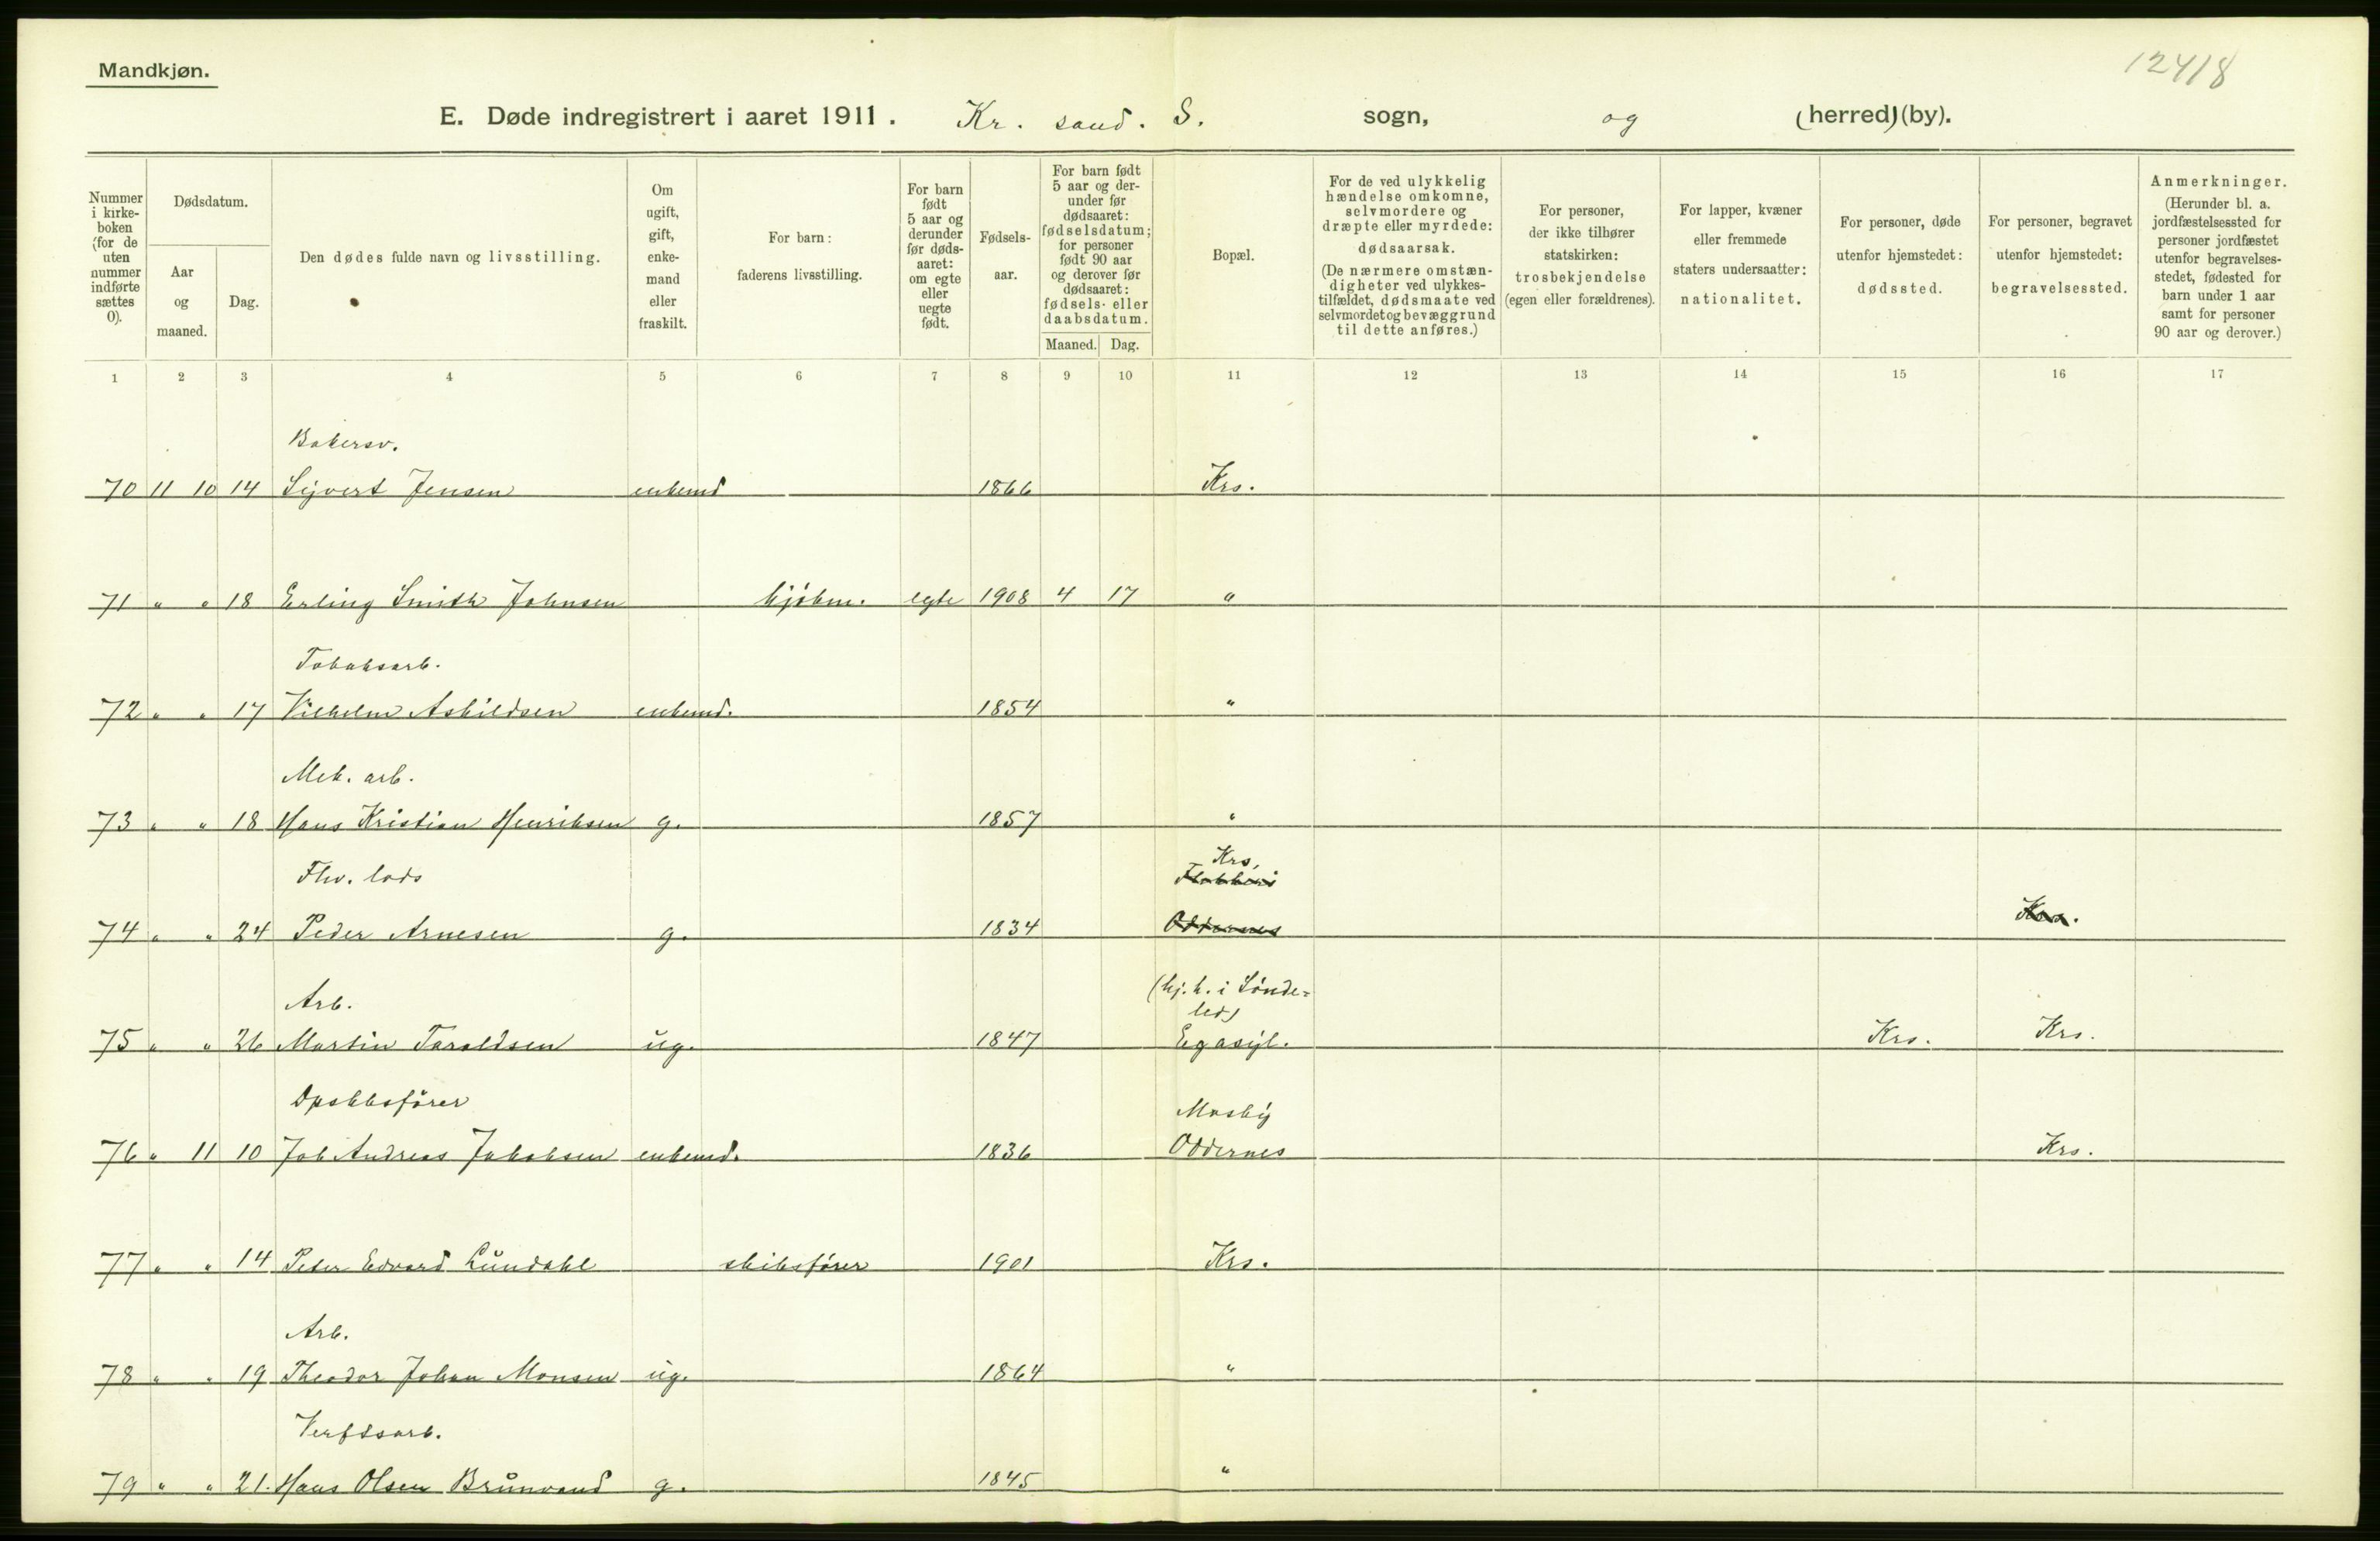 Mandkjøn.
12418
E. Døde indregistrert i aaret 1911. Kr. sand. S. sogn, og (herred) (by).
Nummer i kirke-boken (for de uten nummer indførte sættes 0).
Dødsdatum.
Aar og maaned.
Dag.
Den dødes fulde navn og livsstilling.
Om ugift, gift, enke-mand eller fraskilt.
For barn: faderens livsstilling.
For barn født 5 aar og derunder før døds-aaret: om egte eller uegte født.
Fødsels-aar.
For barn født 5 aar og der-under før dødsaaret: fødselsdatum; for personer født 90 aar og derover før dødsaaret: fødsels- eller daabsdatum.
Maaned. Dag.
Bopæl.
For de ved ulykkelig hændelse omkomne, selvmordere og dræpte eller myrdede: dødsaarsak. (De nærmere omstæn-digheter ved ulykkes-tilfældet, dødsmaate ved selvmordet og bevæggrund til dette anføres.)
For personer, der ikke tilhører statskirken: trosbekjendelse (egen eller forældrenes).
For lapper, kvæner eller fremmede staters undersaatter: nationalitet.
For personer, døde utenfor hjemstedet: dødssted.
For personer, begravet utenfor hjemstedet: begravelsessted.
Anmerkninger. (Herunder bl. a. jordfæstelsessted for personer jordfæstet utenfor begravelses-stedet, fødested for barn under 1 aar samt for personer 90 aar og derover.)
1 2 3 4 5 6 7 8 9 10 11 12 13 14 15 16 17
Bakersv.
70 11 10 14 Sijvert Jensen enkemd 1866 Krs.
71 " " 18 Erling Smith Johnsen kjøbm. egte 1908 4 17 "
Tobaksarb.
72 " " 17 Vilhelm Askildsen enkemd. 1854 "
Mek. arb.
73 " " 18 Hans Kristian Henriksen g. 1857 "
Krs.
Fhv. lods
74 " " 24 Peder Arnesen g. 1834 Oddernes Krs.
(hj.h. i Sønde-
Arb. led)
75 " " 26 Martin Taraldsen ug. 1847 Egasyl. Krs. Krs.
Opskbsfører Mosby
76 " 11 10 Job Andreas Jakobsen enkemd. 1836 Oddernes Krs.
77 " " 14 Peter Edvard Lundahl skibsfører 1901 Krs.
Arb.
78 " " 19 Theodor Johan Monsen ug. 1864 "
Verftsarb.
79 " " 21. Hans Olsen Brunvand g. 1845 "